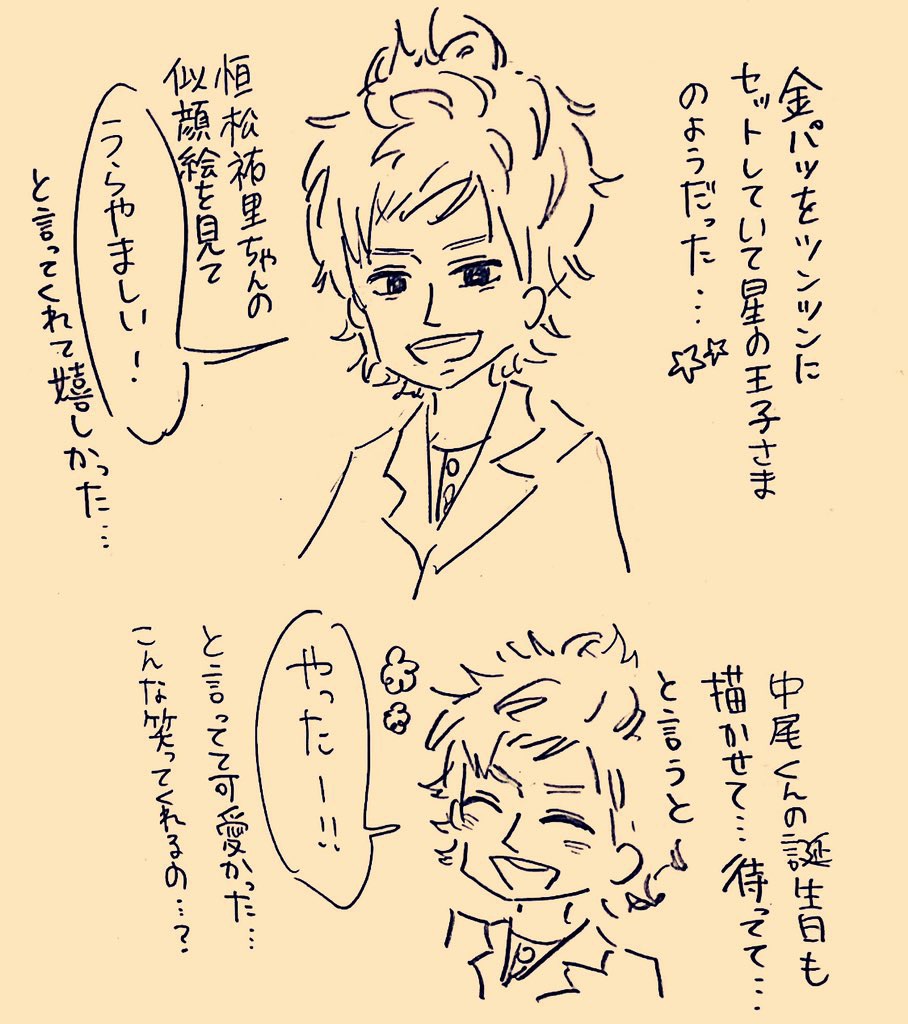 金パツをツンツンに
セットしていて星の王子さま
のようだった…
恒松祐里ちゃんの
似顔絵を見て
うらやましい！
と言ってくれて嬉しかった…
中尾くんの誕生日も
描かせて…待ってて…
と言うと
やったー!!
と言ってて可愛かった…
こんな笑ってくれるの…？